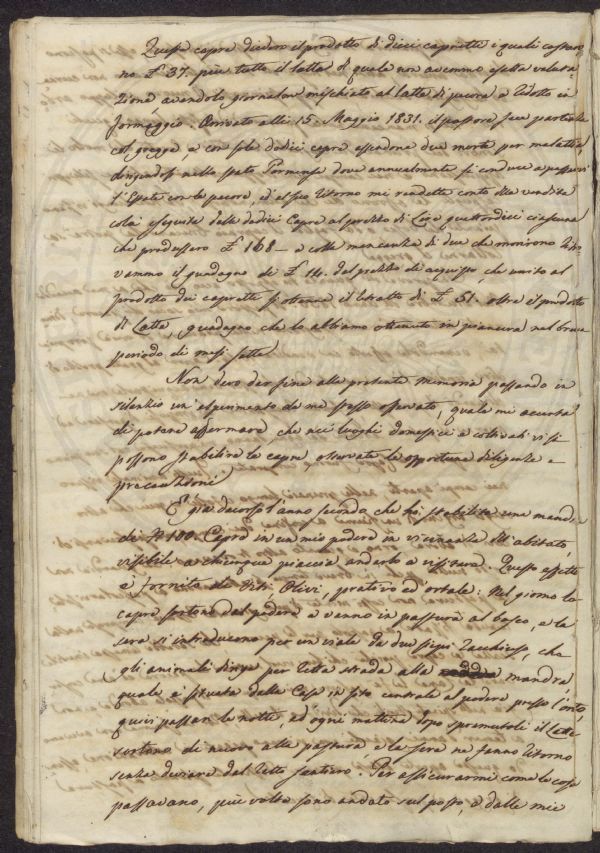 Queste capre diedero il prodotto di dieci capretti i quali costaro
no £ 37. più tutto il latte di quale non avemmo esatta valuta-
zione, avendolo giornalm. mischiato al latte di pecora e ridotto in
formaggio. Arrivato alli 15. Maggio 1831. il pastore fece partenza
col gregge, e con sole dodici capre essendone due morte per malattia,
dirigendosi nello stato Parmense dove annualmente si conduce a passarvi
l'Estate con le pecore, ed al suo ritorno mi rendette conto della vendita
colà eseguita delle dodici Capre al prezzo di Lire quattordici ciascuna
che produssero £ 168 – e colla mancanza di due che morirono tro-
vammo il guadagno di £ 14. del prezzo di acquisto, che unito al
prodotto dei capretti si ottenne il totale di £ 51. oltre il prodotto
di Latte, guadagno che lo abbiamo ottenuto in pianura nel breve
periodo di mesi sette.
Non devo dar fine alla presente memoria passando in
silenzio un'esperimento da me stesso osservato, quale mi accerta
di potere affermare, che nei luoghi domestici e coltivati vi si
possono stabilire le capre, osservate le opportune diligenze e
precauzioni
È già decorso l'anno secondo che ho stabilita una mandra
di N° 100. Capre in un mio podere in vicinanza all'abitato,
visibile a chiunque piaccia andarlo a visitare. Questo
è fornito di Viti, Olivi, prativo ed ortale: Nel giorno le
capre sortono dal podere e vanno in pastura al bosco, e la
sera si introducono per un viale da due siepi racchiuso, che
gli animali dirige per retta strada alla mandra,
quale è situata dalla Casa in sito centrale al podere
quivi passan la notte, ed ogni mattina dopo spremutoli il Latte
sortono di nuovo alla pastura e la sera ne fanno ritorno
senza deviare dal retto sentiero. Per assicurarmi come la cosa
passavano, più volte sono andato sul posto, e dalle mie